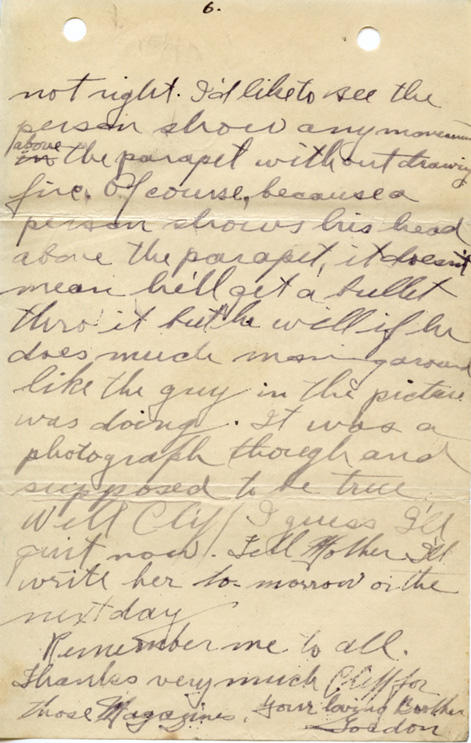 6.
not right. I'd like to see the
person show any movement
above
in the parapet without drawing
fire. Of course, because a
person shows his head
above the parapet, it doesn't
mean he'll get a bullet
thro it but he will if he
does much moving around
like the guy in the picture
was doing. It was a
photograph though and
supposed to be true.
Well Cliff I guess I'll
quit now. Tell Mother I'll
write her to-morrow or the
next day
Remember me to all.
Thanks very much Cliff for
those Magazines. Your loving Brother
Gordon